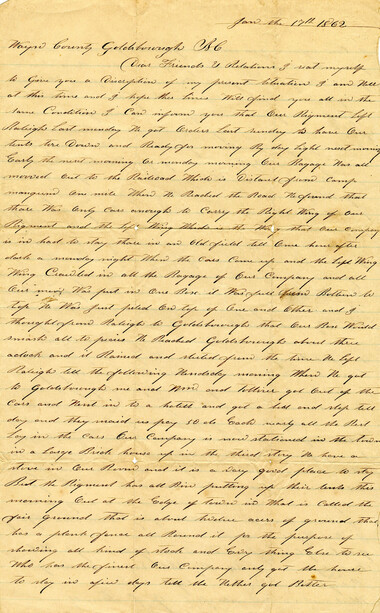 Jan the 17th 1862
Wayne County Goldsborough N C
Dear Friends & Relations I seat myself
to Give you a Discription of my present situation I am Well
at this time and I hope this lines Will find you all in the
same Condition I Can inform you that Our Regiment left
Raleigh Last monday We got Orders Last sunday to have Our
tents Down and Ready for moving By day light next morning
Early the next morning Or monday morning Our Bagage Was all
moved Out to the Railroad Which is Distant from Camp
mangrum One mile When We Reached the Road We found that
there Was Only Cars enough to Carry the Right Wing of Our
Regiment and the left Wing Which is the Wing that Our Company
is in had to stay there in an Old field till
dark a monday night When the Cars Come up and the left Wing
Wing Crawled in all the Bagage of Our Company and all
Our men Was put in One Box it Was full from Bottom to
top We Was Just piled On top of One and Other and I
thought from Raleigh to Goldsborough that Our Box Would
smash all to peaces We Reached Goldsborough about three
aclock and it Rained and sleeted from the time We left
Raleigh till the following Wendsday morning When We got
to Goldsborough me and and got Out of the
Cars and Went in to a hotell and got a bed and slep till
day and they made us pay 50 cts Each nearly all the Rest
Lay in the Cars Our Company is now stationed in the town
in a Large Brick house up in the third story We have a
stove in Our Room and it is a very good place to stay
But the Regiment has all Bin putting up their tents this
morning Out at the Edge of town in What is Called the
fair Ground that is about twelve acers of ground that
has a plank fence all Round it for the purpose of
showing all kind of stock and Evry thing Else to see
Who has the finest Our Company only got the house
to stay in a few days till the Wether got Better